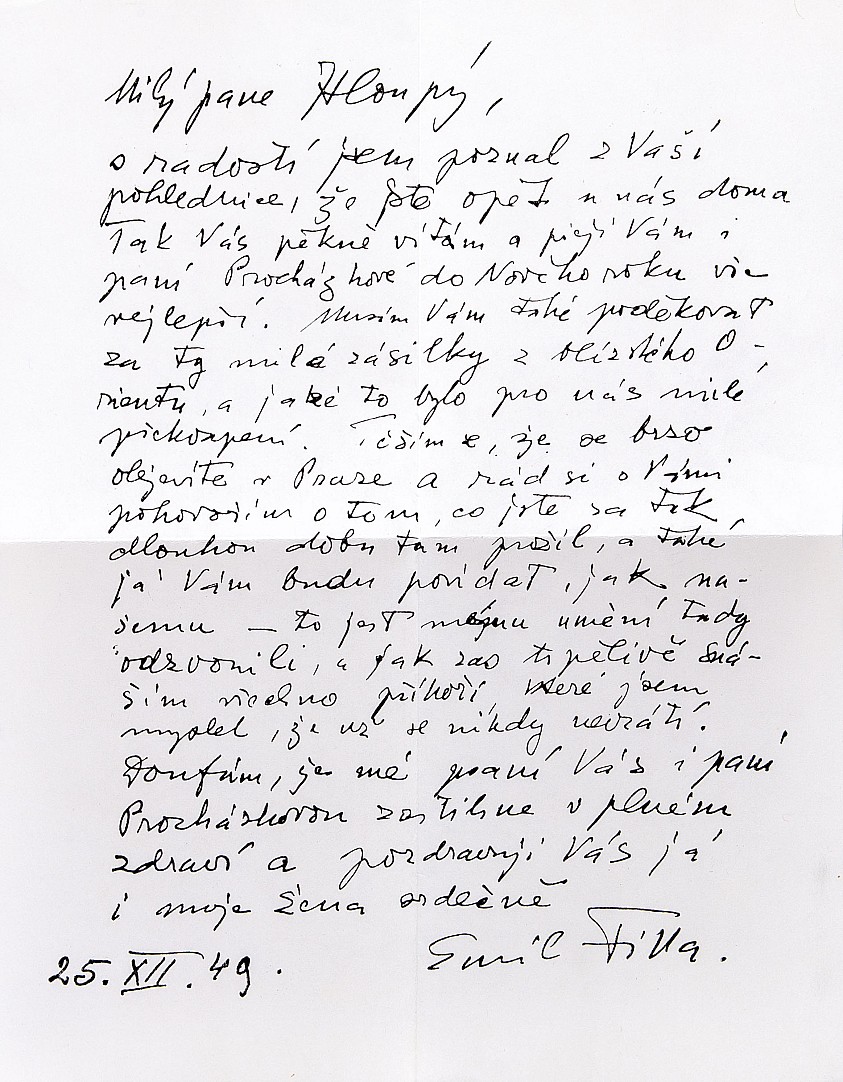 Milý pane Hloupý,
s radostí jsem poznal z Vaší
pohlednice, že jste opět u nás doma
Tak Vás pěkně vítám a přeji Vám i
paní Procházkové do Nového roku vše
nejlepší. Musím Vám také poděkovat
za ty milé zásilky z blízského O-
rientu, a jaké to bylo pro nás milé
překvapení. Těším se, že se brzo
objevíte v Praze a rád si s Vámi
pohovořím o tom, co jste za tak
dlouhou dobu tam prožil, a také
já Vám budu povídat, jak na-
šemu — to jest mému umění tady
odzvonili, a jak zas trpělivě sná-
ším všechno příkoří, které jsem
myslel, že už se nikdy nevrátí.
Doufám, že mé psaní Vás i paní
Procházkovou zastihne v plném
zdraví a pozdravuji Vás já
i moje žena srdečně
Emil Filla.
25. XII. 49.